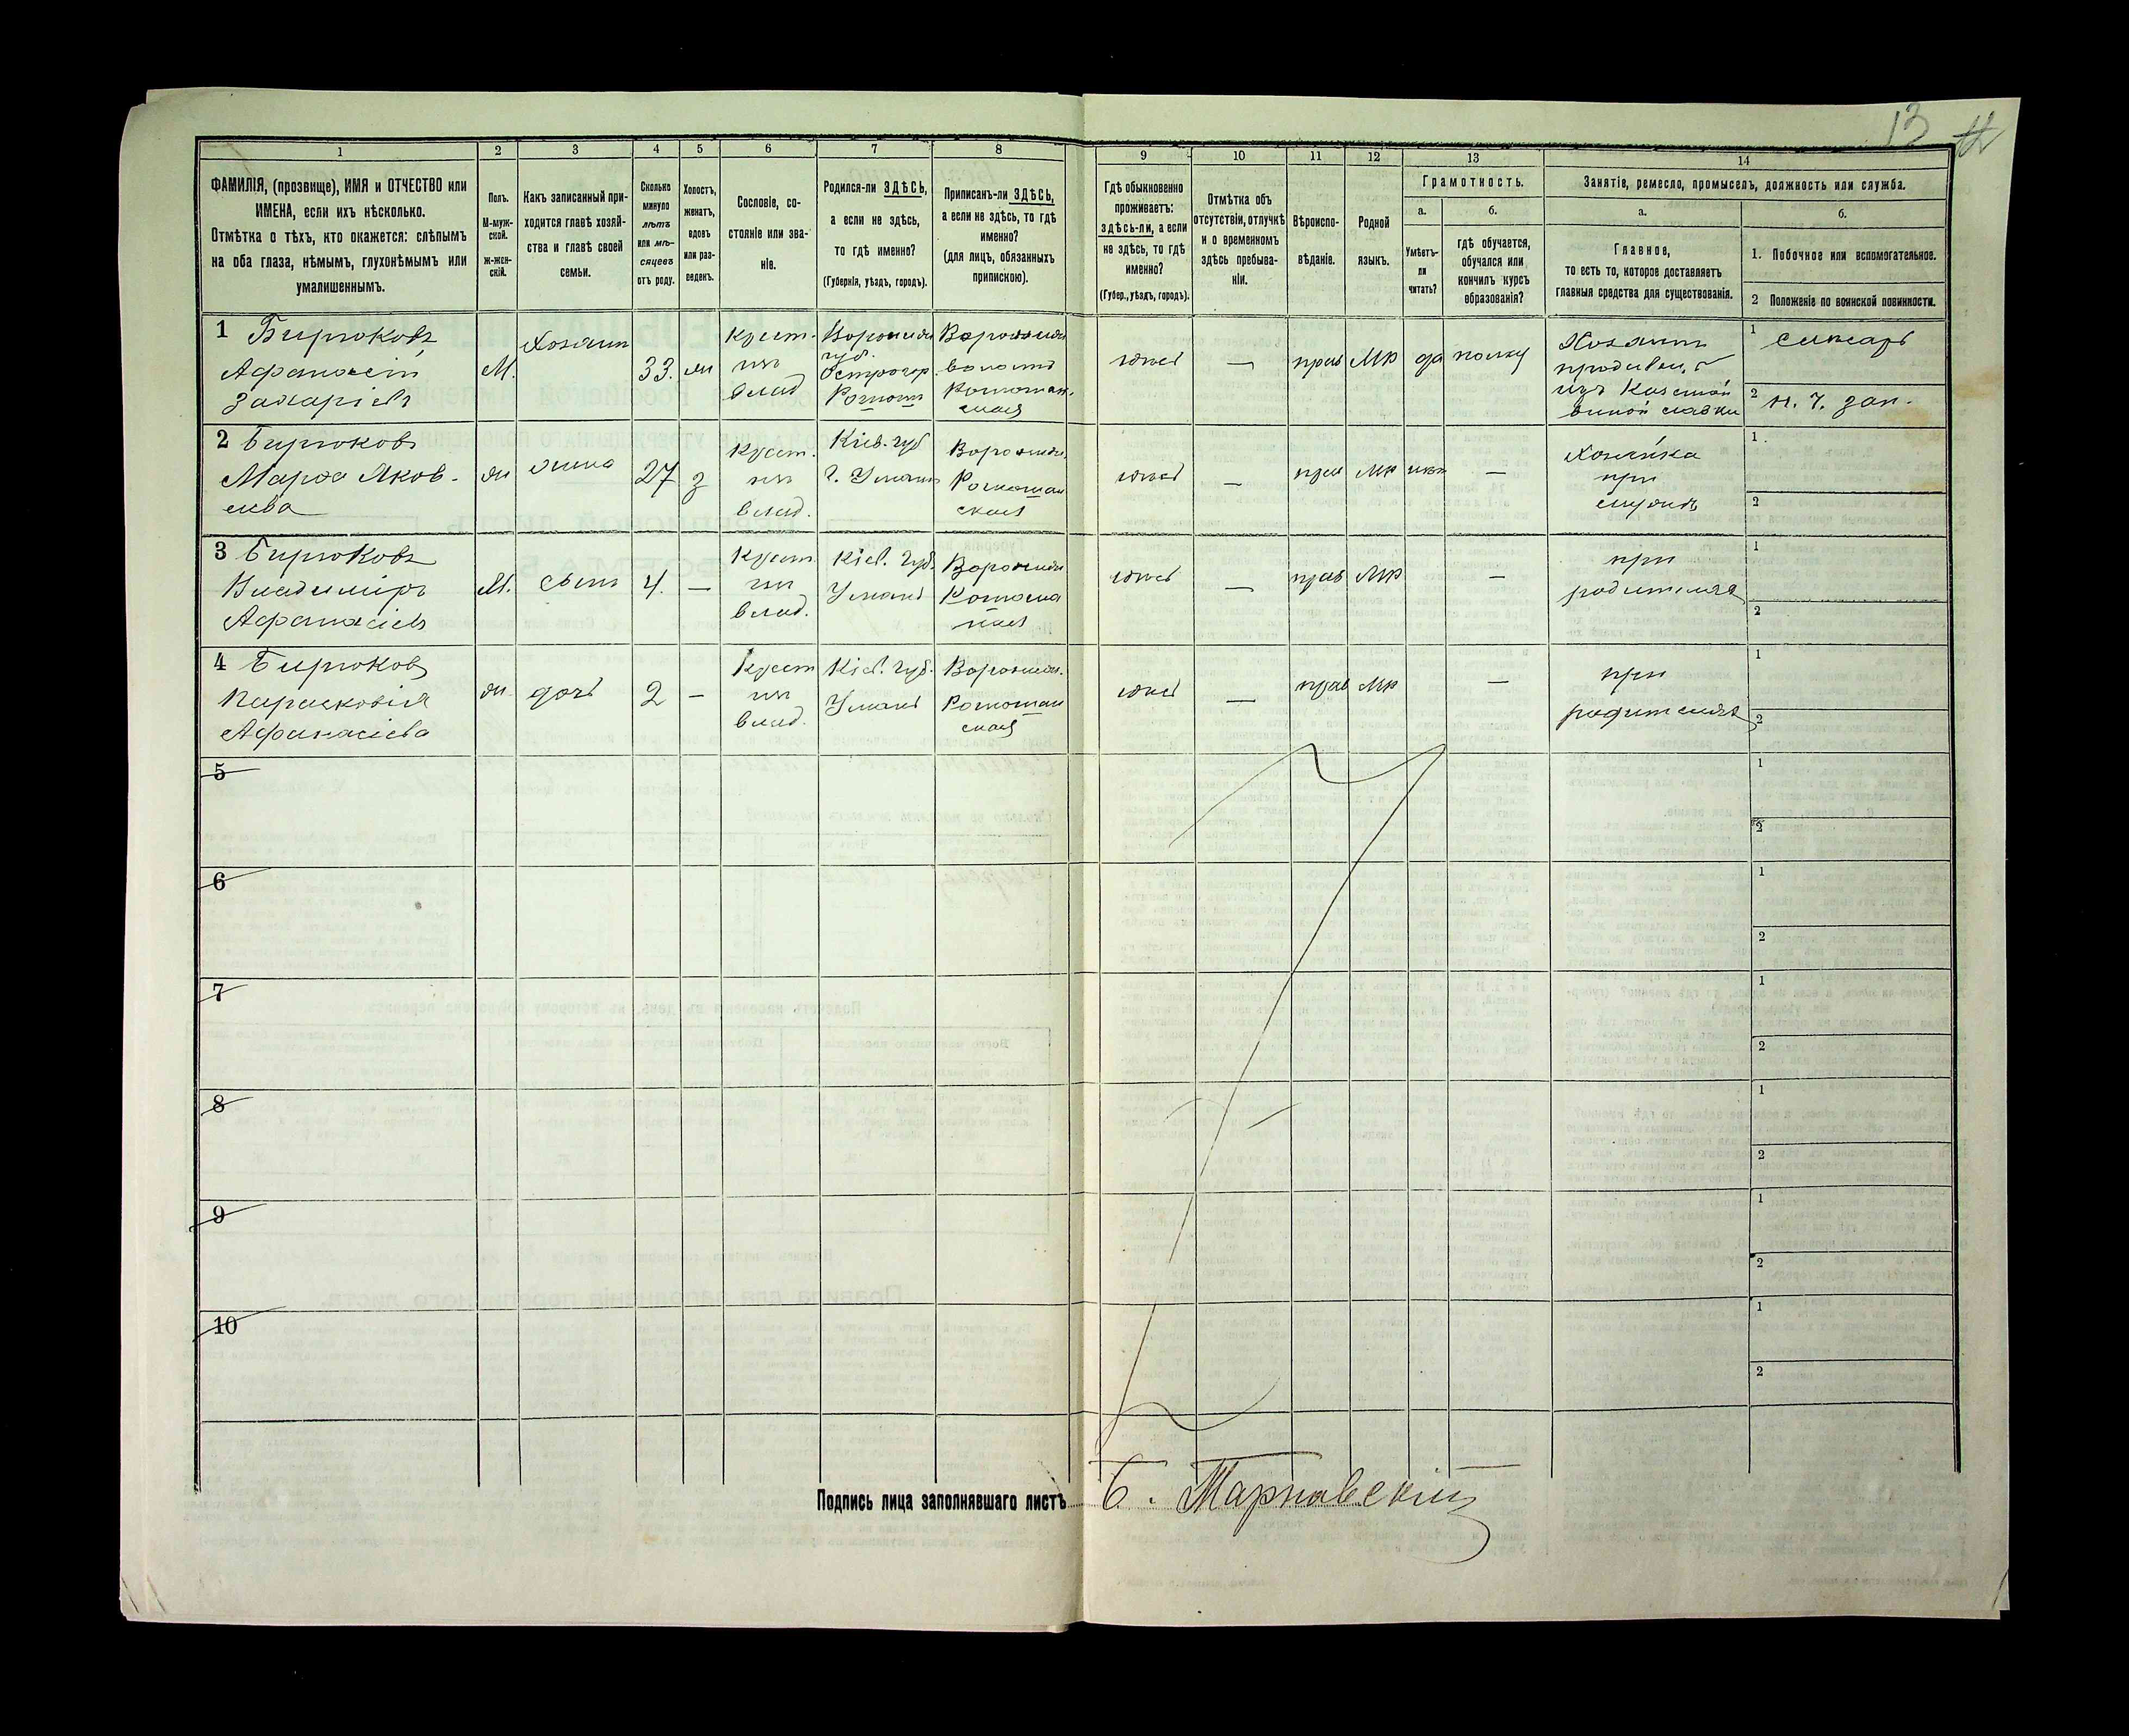 13
1
2
3
4
5
6
7
8
9
10
11
12
13
14
ФАМИЛІЯ, (прозвище), ИМЯ и ОТЧЕСТВО или
ИМЕНА, если ихъ нѣсколько.
Отмѣтка о тѣхъ, кто окажется: слѣпымъ
на оба глаза, нѣмымъ, глухонѣмымъ или
умалишеннымъ.
Полъ.
М-муж-
ской.
Ж-жен-
скій.
Какъ записанный при-
ходится главѣ хозяй-
ства и главѣ своей
семьи.
Сколько
минуло
лѣтъ
или мѣ-
сяцевъ
отъ роду.
Холостъ,
женатъ,
вдовъ
или раз-
веденъ.
Сословіе, со-
стояніе или зва-
ніе.
Родился-ли ЗДѢСЬ,
а если не здѣсь,
то гдѣ именно?
(Губернія, уѣздъ, городъ).
Приписанъ-ли ЗДѢСЬ,
а если не здѣсь, то гдѣ
именно?
(для лицъ, обязанныхъ
припискою).
Гдѣ обыкновенно
проживаетъ:
здѣсь-ли, а если
не здѣсь, то гдѣ
именно?
(Губер., уѣздъ, городъ).
Отмѣтка объ
отсутствіи, отлучкѣ
и о временномъ
здѣсь пребыва-
ніи.
Вѣроиспо-
вѣданіе.
Родной
языкъ.
Грамотность.
а.
Умѣетъ-
ли
читать?
б.
гдѣ обучается,
обучался или
кончилъ курсъ
образованія?
Занятіе, ремесло, промыселъ, должность или служба.
а.
Главное,
то есть то, которое доставляетъ
главныя средства для существованія.
б.
1. Побочное или вспомогательное.
2 Положеніе по воинской повинности.
1 Бирюковъ
Афанасій
Захаріевъ
М.
Хозяинъ
33.
жн
Крест.
изъ
влад
Воронеж
губ.
Острогор.
Воронежск
волости
здѣсь
—
прав
МР
да
полку
Хозяинъ
продавец
изъ Казенной
винной лавки
1 слесарь
2 н. ч. зап.
2 Бирюкова
Марѳа Яков-
лева
жн
жена
27
з
Крест.
изъ
влад.
Кіев. губ
г. Умань
Воронежск.
здѣсь
—
прав
МР
нѣт
—
Хозяйка
при
1
2
3 Бирюковъ
Владиміръ
Афанасіевъ
М.
сынъ
4.
—
Крест
изъ
влад.
Кіев. губ.
Умань
Воронежск
здѣсь
—
прав
МР
—
при
родителях
1
2
4 Бирюков
Парасковія
Афанасіева
жн
дочь
2
—
Крест
изъ
влад.
Кіев. губ.
Умань
Воронежск.
здѣсь
—
прав
МР
—
при
родителях
1
2
5
1
2
6
1
2
7
1
2
8
1
2
9
1
2
10
1
2
Подпись лица заполнявшаго листъ
Б. Тарнавскій